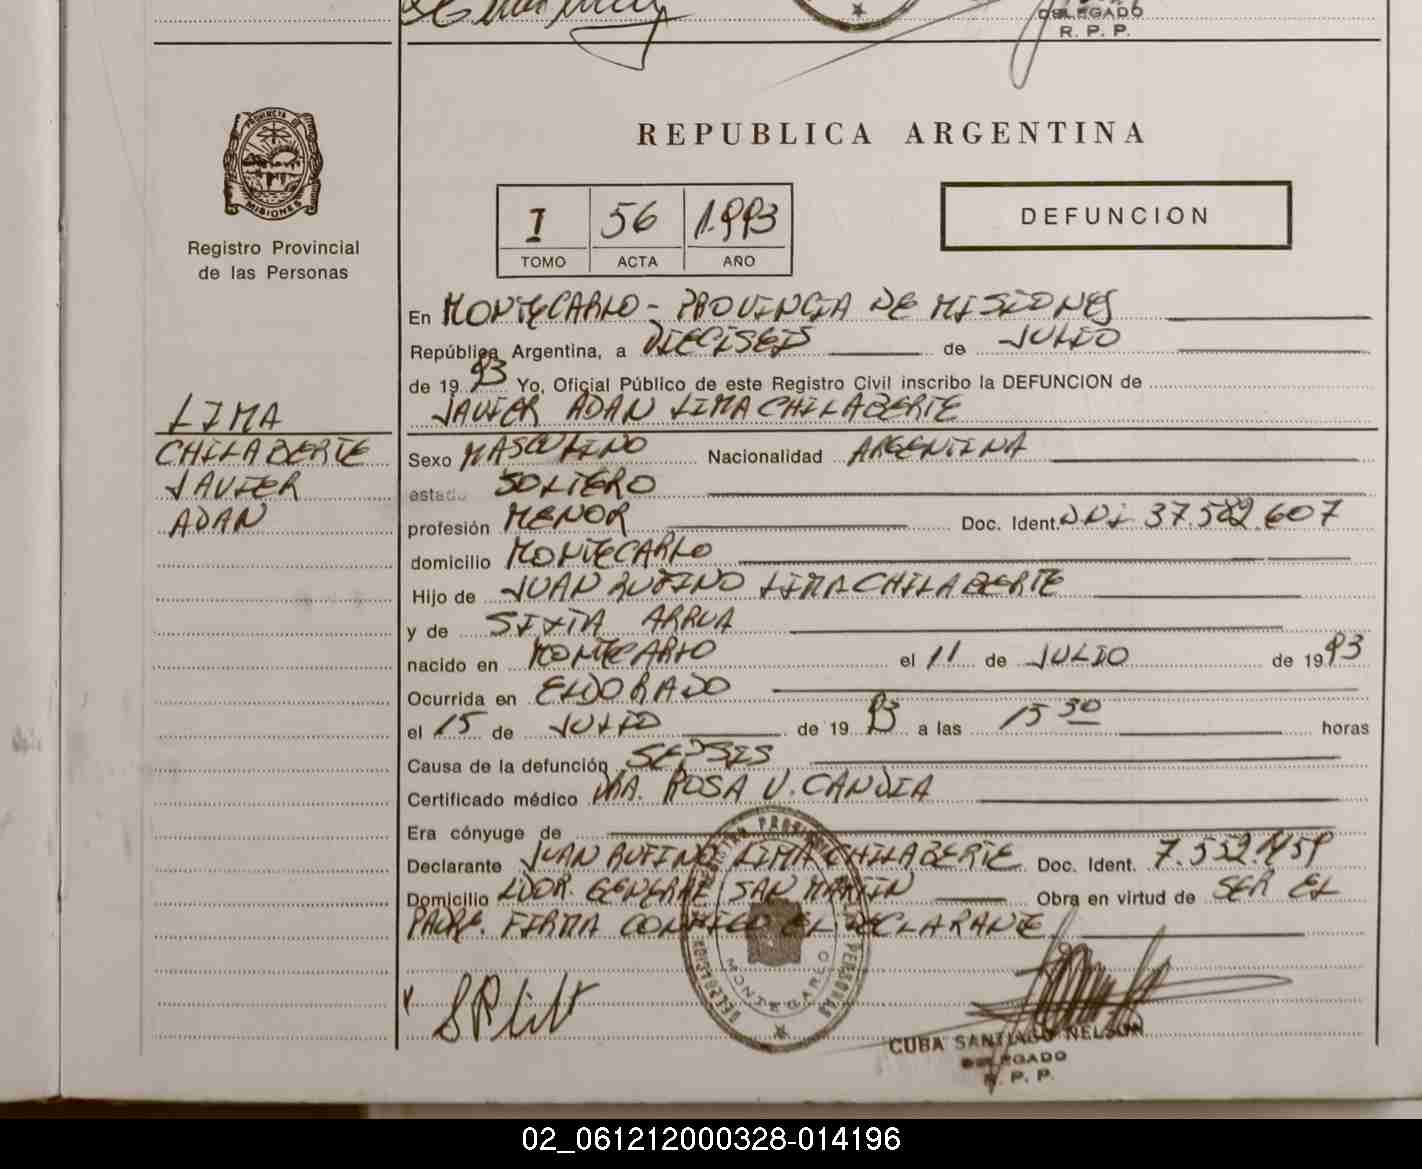 DELEGADO
R. P. P.
PROVINCIA DE
MISIONES
Registro Provincial
de las Personas
REPUBLICA ARGENTINA
I 56 1.993
TOMO ACTA AÑO
DEFUNCION
En MONTECARLO - PROVINCIA DE MISIONES
República Argentina, a DIECISEIS de JULIO
de 19 93 Yo, Oficial Público de este Registro Civil inscribo la DEFUNCION de
JAVIER ADAN LIMA CHILABERTE
LIMA
CHILABERTE
JAVIER
ADAN
Sexo MASCULINO Nacionalidad ARGENTINA
estado SOLTERO
profesión MENOR Doc. Ident. DNI 37.582.607
domicilio MONTECARLO
Hijo de JUAN RUFINO LIMA CHILABERTE
y de SIXTA ARRUA
nacido en MONTECARLO el 11 de JULIO de 19 93
Ocurrida en ELDORADO
el 15 de JULIO de 19 93 a las 15 30 horas
Causa de la defunción SEPSIS
Certificado médico DRA. ROSA V. CANDIA
Era cónyuge de
Declarante JUAN RUFINO LIMA CHILABERTE Doc. Ident. 7.552.459
Domicilio LDOR. GENERAL SAN MARTIN Obra en virtud de SER EL
PADRE. FIRMA CONMIGO EL DECLARANTE
REGISTRO PROVINCIAL DE LAS PERSONAS
MONTECARLO
CUBA SANTIAGO NELSON
DELEGADO
R. P. P.
02_061212000328-014196